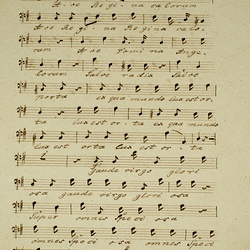 A-ve Regi-na coelorum
Ave Regi-na Regina coelo-
rum Ave Domina Ange-
lorum Salve radix Salve
porta ex qua mundo lux est or-
ta lux est orta ex qua mundo
lux est orta lux est or-ta
Gaude virgo glori
osa gaude virgo glori osa
Super omnes Speci osa
omnes Speci osa omnes